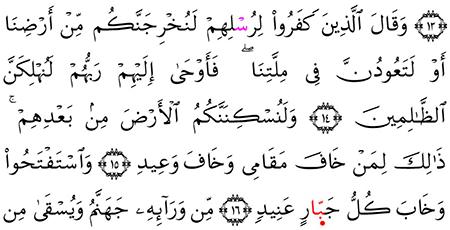 ﴿١٣﴾ وَقَالَ ٱلَّذِينَ كَفَرُوا۟ لِرُسْلِهِمْ لَنُخْرِجَنَّكُم مِّنْ أَرْضِنَا
أَوْ لَتَعُودُنَّ فِى مِلَّتِنَا ۖ فَأَوْحَىٰ إِلَيْهِمْ رَبُّهُمْ لَنُهْلِكَنَّ
ٱلظَّٰلِمِينَ ﴿١٤﴾ وَلَنُسْكِنَنَّكُمُ ٱلْأَرْضَ مِنۢ بَعْدِهِمْ ۚ
ذَٰلِكَ لِمَنْ خَافَ مَقَامِى وَخَافَ وَعِيدِ ﴿١٥﴾ وَٱسْتَفْتَحُوا۟
وَخَابَ كُلُّ جَبّ۪ارٍ عَنِيدٍ ﴿١٦﴾ مِّن وَرَآئِهِۦ جَهَنَّمُ وَيُسْقَىٰ مِن